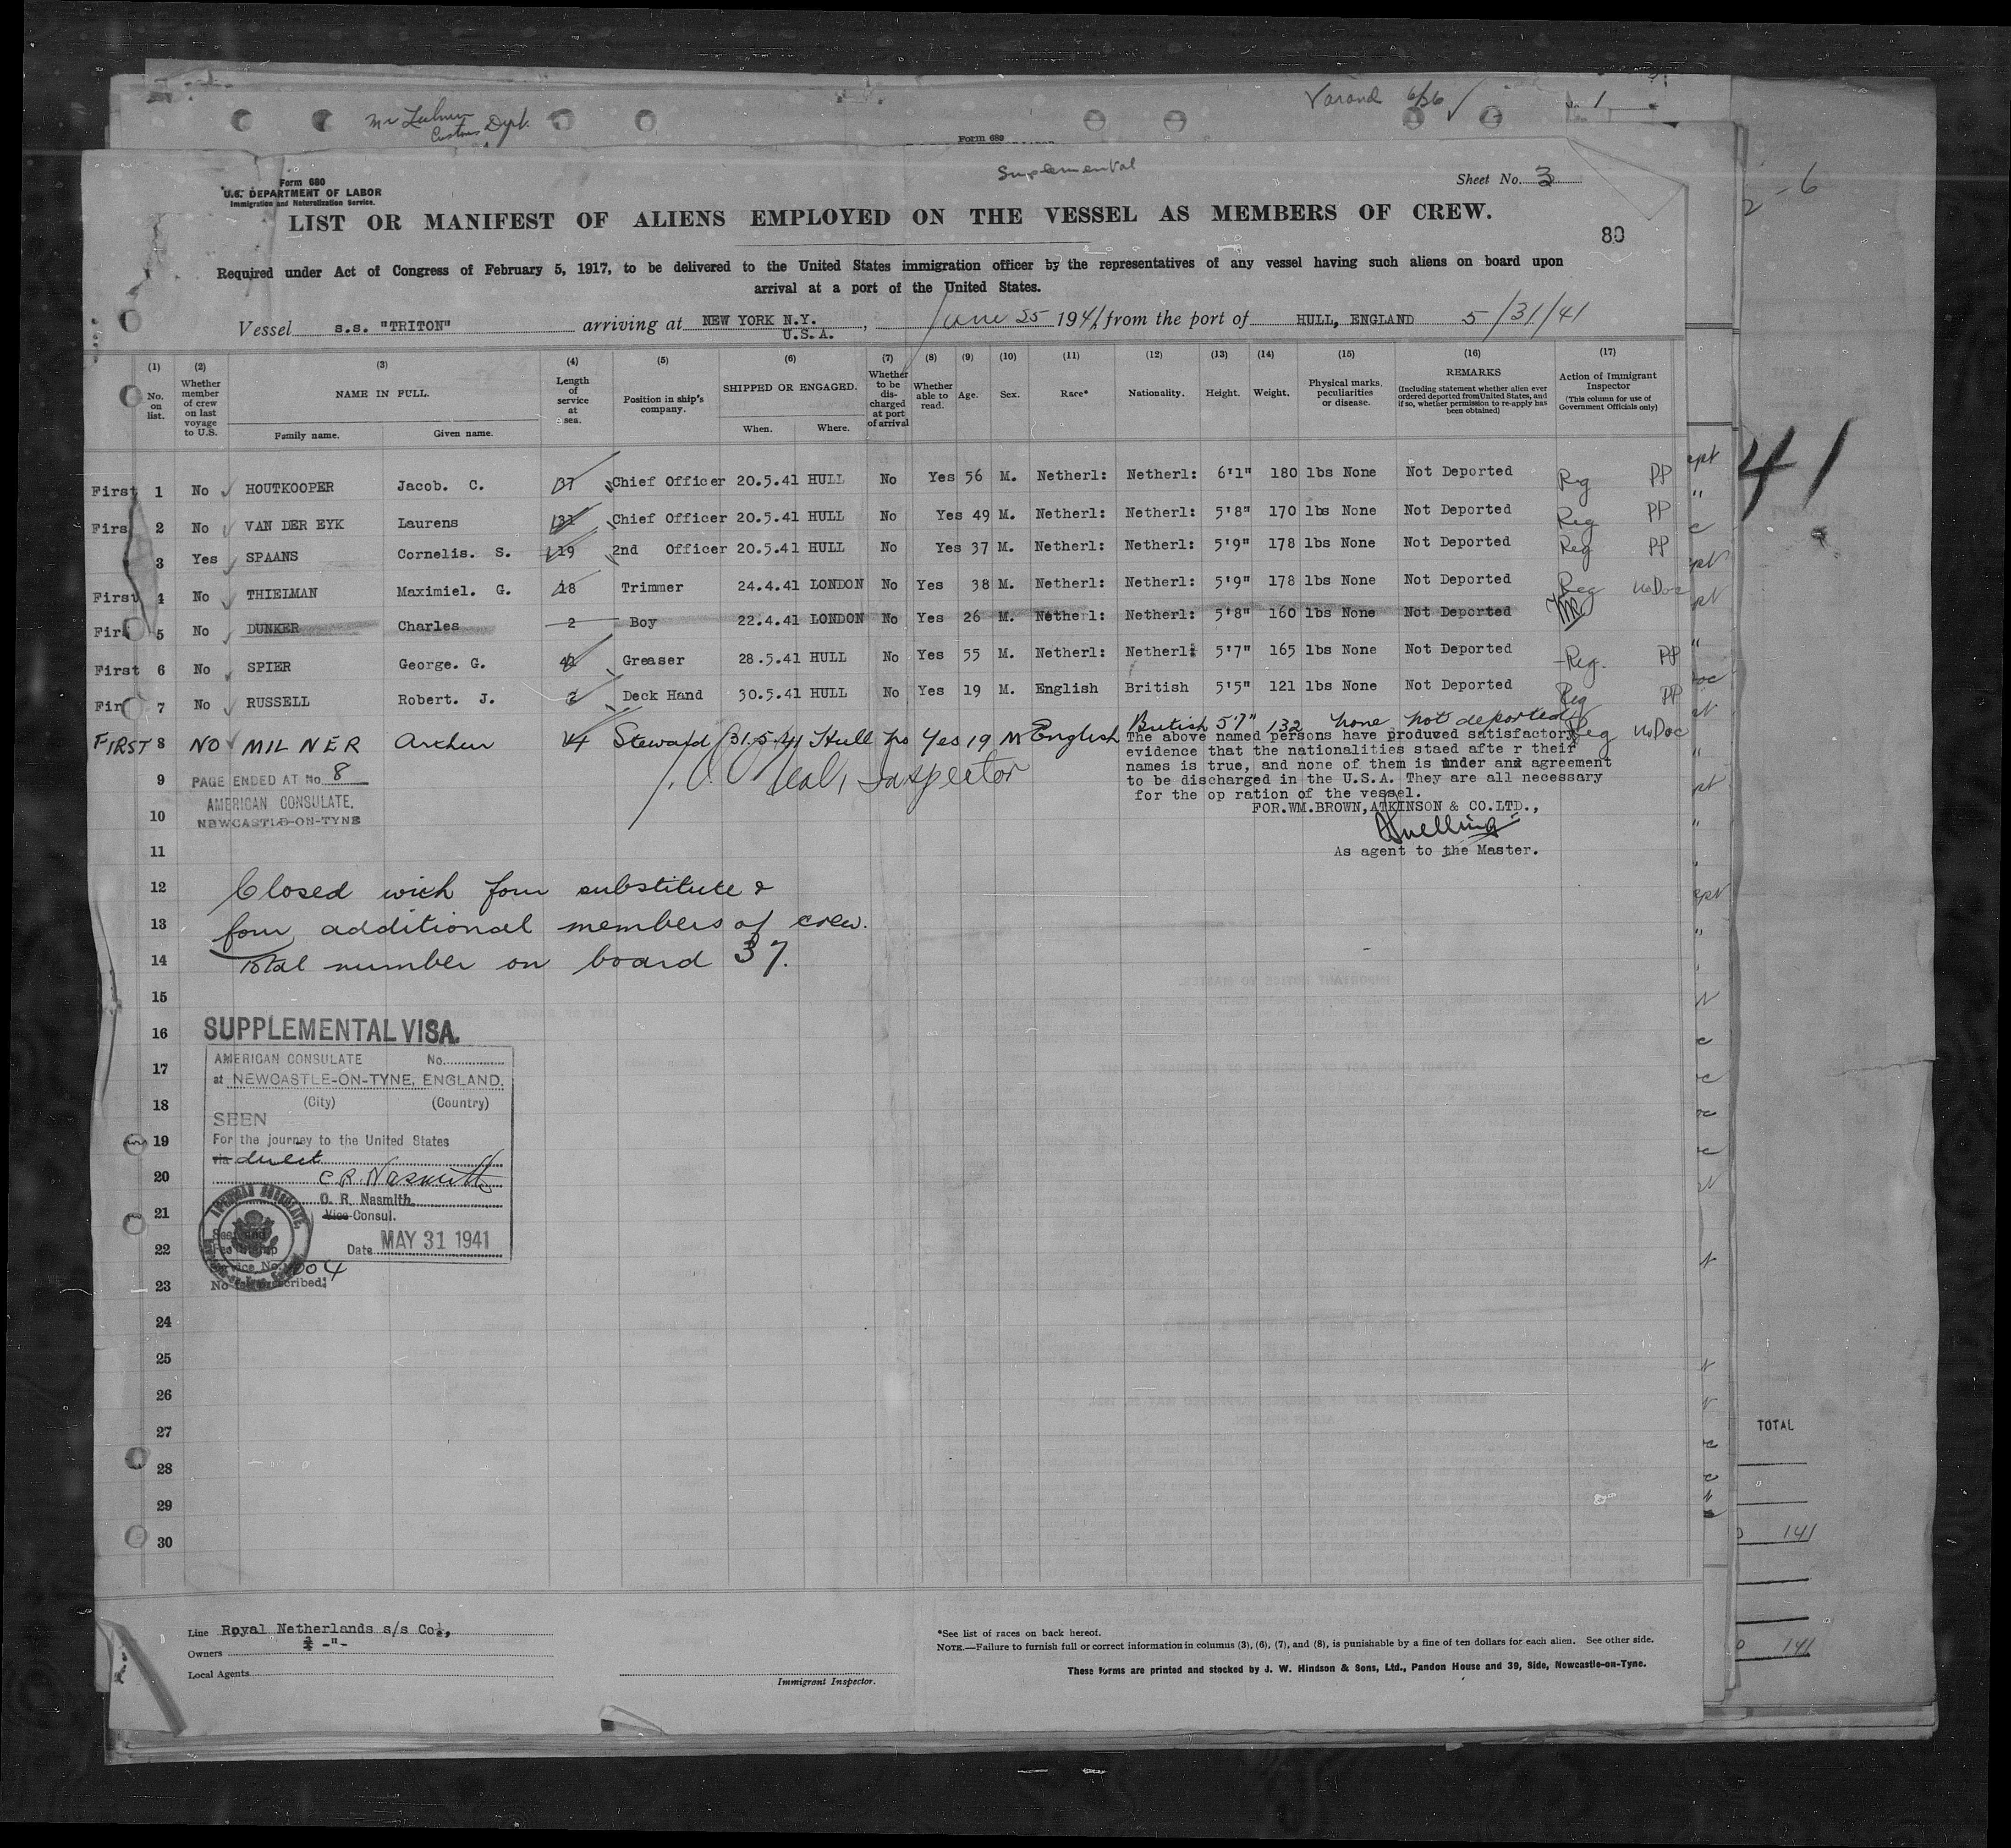 Customs Dept.
6/26
1
Form 680
Suplemental
Form 680
U.S. DEPARTMENT OF LABOR
Immigration and Naturalization Service.
Sheet No. 3
LIST OR MANIFEST OF ALIENS EMPLOYED ON THE VESSEL AS MEMBERS OF CREW.
80
Required under Act of Congress of February 5, 1917, to be delivered to the United States immigration officer by the representatives of any vessel having such aliens on board upon
arrival at a port of the United States.
Vessel s.s. "TRITON" arriving at NEW YORK N.Y. U.S.A., June 25 1941, from the port of HULL, ENGLAND 5/31/41
(1) (2) (3) (4) (5) (6) (7) (8) (9) (10) (11) (12) (13) (14) (15) (16) (17)
No. on list.
Whether member of crew on last voyage to U.S.
NAME IN FULL.
Family name. Given name.
Length of service at sea.
Position in ship's company.
SHIPPED OR ENGAGED.
When. Where.
Whether to be discharged at port of arrival
Whether able to read.
Age.
Sex.
Race*
Nationality.
Height.
Weight.
Physical marks, peculiarities or disease.
REMARKS
(Including statement whether alien ever ordered deported from United States, and if so, whether permission to re-apply has been obtained)
Action of Immigrant Inspector
(This column for use of Government Officials only)
First 1 No HOUTKOOPER Jacob. C. 37 Chief Officer 20.5.41 HULL No Yes 56 M. Netherl: Netherl: 6'1" 180 lbs None Not Deported Reg PP
Firs 2 No VAN DER EYK Laurens 31 Chief Officer 20.5.41 HULL No Yes 49 M. Netherl: Netherl: 5'8" 170 lbs None Not Deported Reg PP
3 Yes SPAANS Cornelis. S. 19 2nd Officer 20.5.41 HULL No Yes 37 M. Netherl: Netherl: 5'9" 178 lbs None Not Deported Reg PP
First 4 No THIELMAN Maximiel. G. 18 Trimmer 24.4.41 LONDON No Yes 38 M. Netherl: Netherl: 5'9" 178 lbs None Not Deported Reg No Doc
Fir 5 No DUNKER Charles 2 Boy 22.4.41 LONDON No Yes 26 M. Netherl: Netherl: 5'8" 160 lbs None Not Deported
First 6 No SPIER George. G. Greaser 28.5.41 HULL No Yes 55 M. Netherl: Netherl: 5'7" 165 lbs None Not Deported Reg. PP
Fir 7 No RUSSELL Robert. J. 2 Deck Hand 30.5.41 HULL No Yes 19 M. English British 5'5" 121 lbs None Not Deported Reg PP
FIRST 8 NO MILNER Arthur 4 Steward 31.5.41 Hull No Yes 19 M English British 5'7" 132 none not deported Reg No Doc
The above named persons have produved satisfactory
evidence that the nationalities staed afte r their
names is true, and none of them is under any agreement
to be discharged in the U.S.A. They are all necessary
for the op ration of the vessel.
FOR.WM.BROWN,ATKINSON & CO.LTD.,
Snelling
As agent to the Master.
Inspector
9 PAGE ENDED AT No. 8
AMERICAN CONSULATE,
10 NEWCASTLE-ON-TYNE
11
12 Closed with four substitute &
13 four additional members of crew.
14 Total number on board 37.
15
16 SUPPLEMENTAL VISA.
AMERICAN CONSULATE No.
17 at NEWCASTLE-ON-TYNE, ENGLAND.
18 (City) (Country)
SEEN
19 For the journey to the United States
via direct
20 C.R. Nasmith
C. R. Nasmith
21 Vice Consul.
22 Date MAY 31 1941
Service No. 004
23 No fee prescribed:
24
25
26
27
28
29
30
41
TOTAL
141
141
Line Royal Netherlands s/s Co.,
Owners -"-
Local Agents
Immigrant Inspector.
*See list of races on back hereof.
NOTE.—Failure to furnish full or correct information in columns (3), (6), (7), and (8), is punishable by a fine of ten dollars for each alien. See other side.
These forms are printed and stocked by J. W. Hindson & Sons, Ltd., Pandon House and 39, Side, Newcastle-on-Tyne.